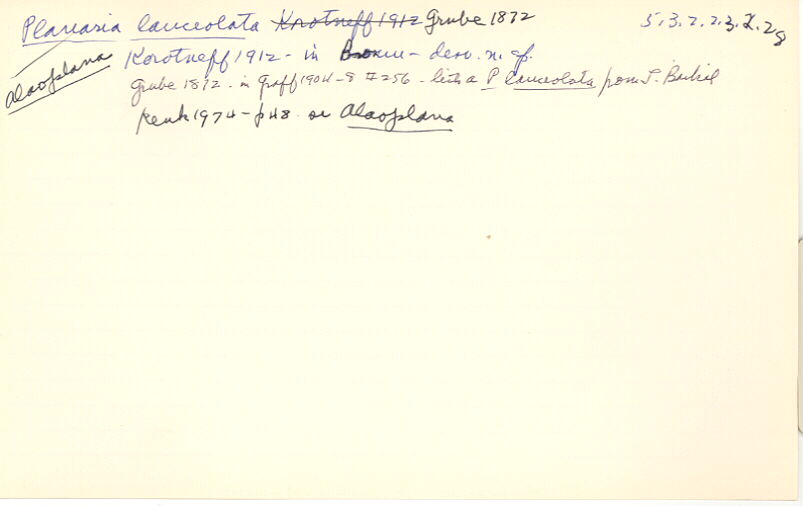 Planaria lanceolata Korotneff 1912 Grube 1872 5.3.2.2.3.2.28
Alaoplana
Korotneff 1912 - in - desv. n. gf.
Grube 1872 - in Graff 1904-8 # 256 - lists a P lanceolata from L. Baikal
Kenk 1974 - p 48 as Alaoplana